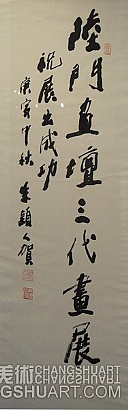 陸門畫壇三代畫展
祝展出成功
庚寅中秋 朱穎人賀
美術 CHANGSHUART